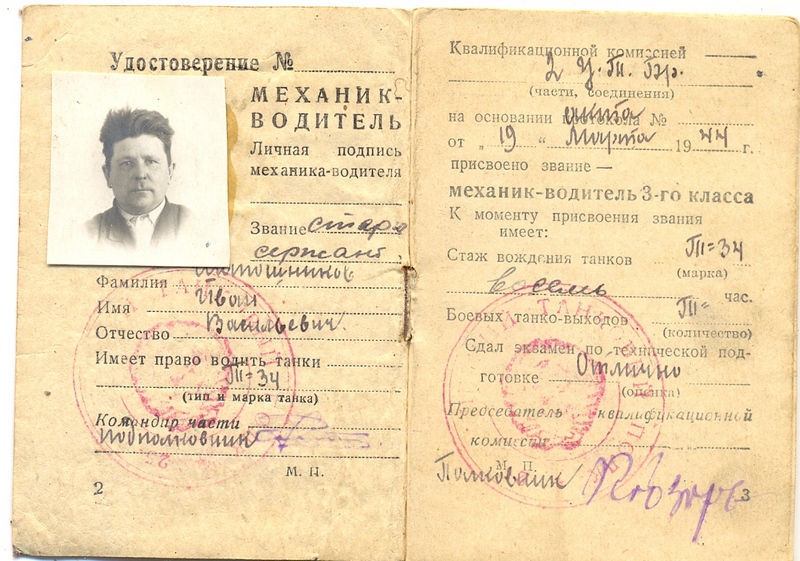 Удостоверение №
МЕХАНИК-
ВОДИТЕЛЬ
Личная подпись
механика-водителя
Звание старш
сержант
Фамилия
Имя Иван
Отчество Васильевич.
Имеет право водить танки
Т=34
(тип и марка танка)
Командир части
подполковник
М. П.
2
Квалификационной комиссией
2 У. Т. Бр.
(части, соединения)
на основании протокола №
от „ 19 “ Марта 1944 г.
присвоено звание —
механик-водитель 3-го класса
К моменту присвоения звания
имеет:
Стаж вождения танков Т=34
(марка)
восемь час.
Боевых танко-выходов
(количество)
Сдал экзамен по технической под-
готовке Отлично
(оценка)
Председатель квалификационной
комиссии
М. П.
Полковник
3